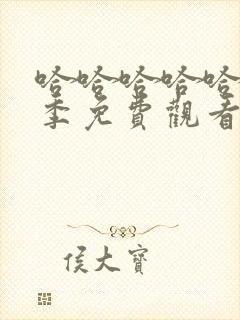 哈哈哈哈哈
季免費觀看
侯大寶